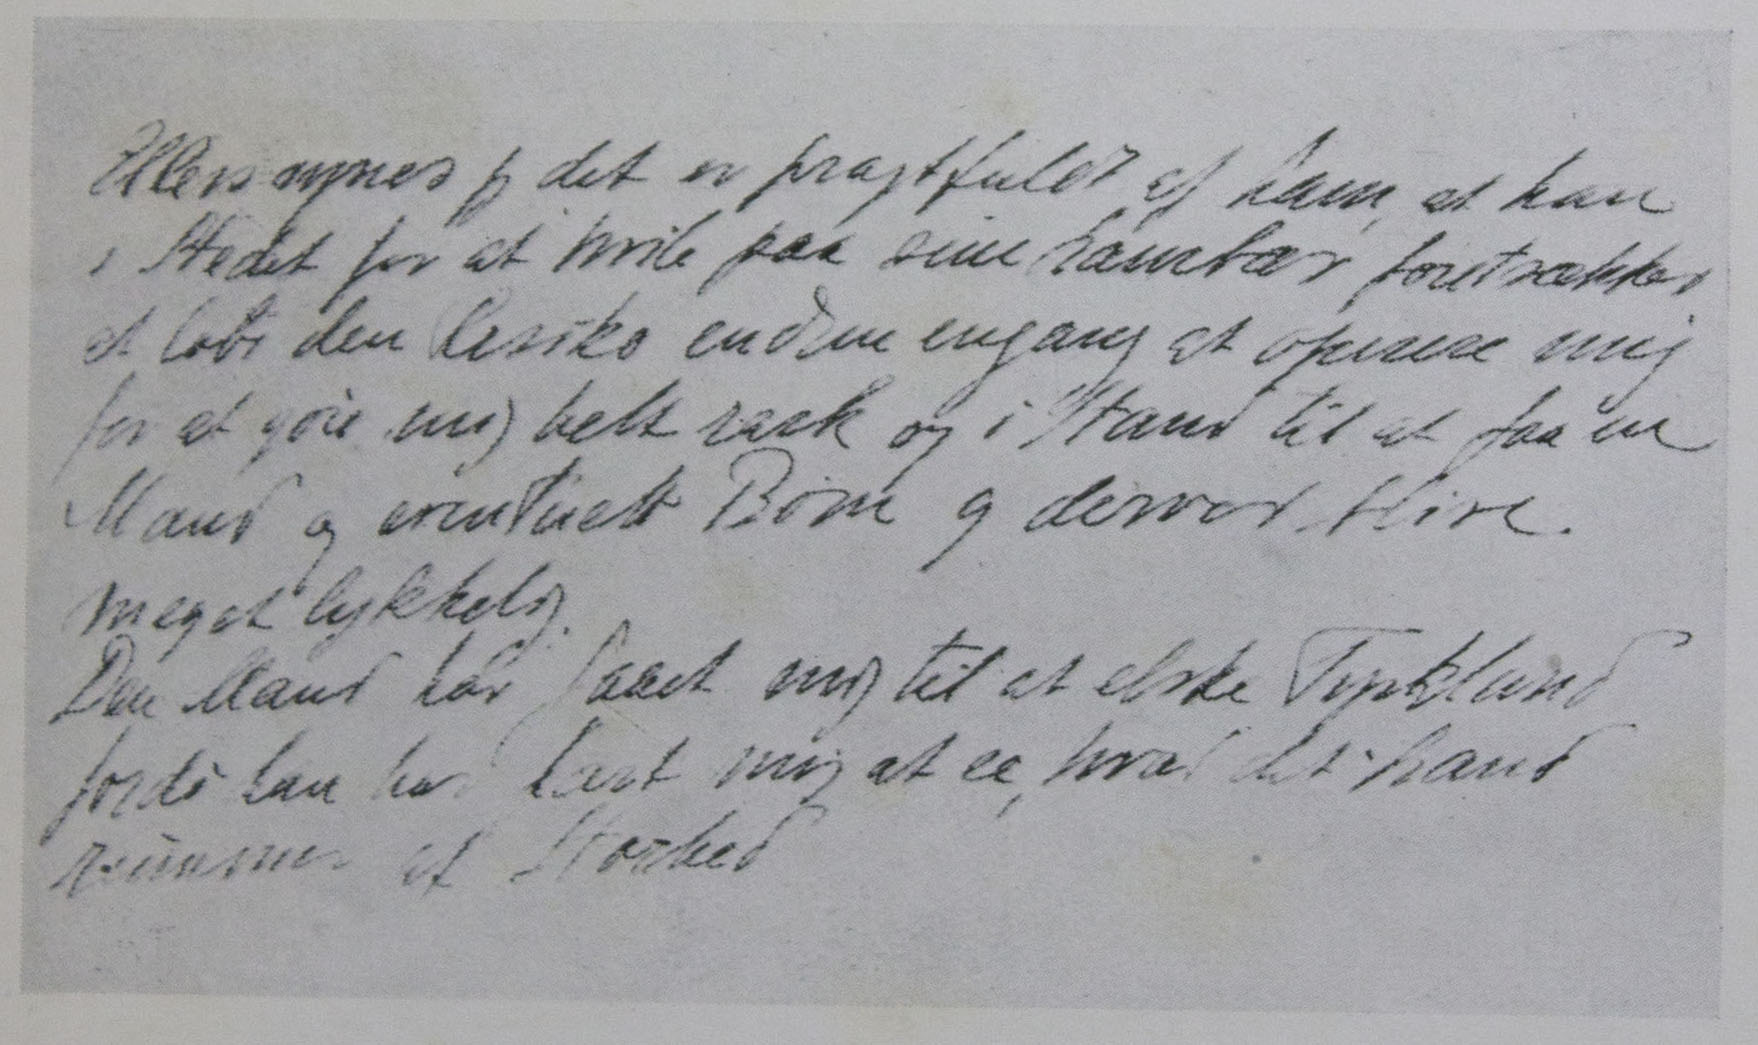 Ellers synes jeg det er pragtfuldt af ham, at han
i Stedet for at hvile paa sine Laurbær foretrækker
at løbe den Risiko endnu engang at operere mig
for at gøre mig helt rask og i Stand til at faa en
Mand og eventuelt Børn og derved blive.
meget lykkelig.
Den Mand har faaet mig til at elske Tyskland
fordi han har lært mig at se, hvad det Land
rummer af Storhed